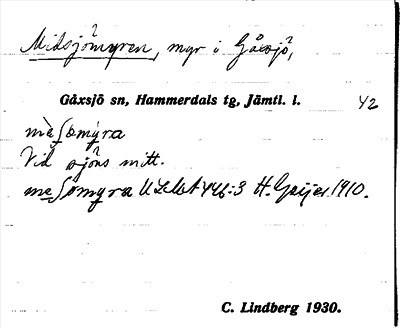 Midsjömyren, myr i Gåxsjö,
Gåxsjö sn, Hammerdals tg, Jämtl. l. 42
mèʃömýra
Vid sjöns mitt.
meʃömyra ULMA 446:3 H. Geijer 1910.
C. Lindberg 1930.